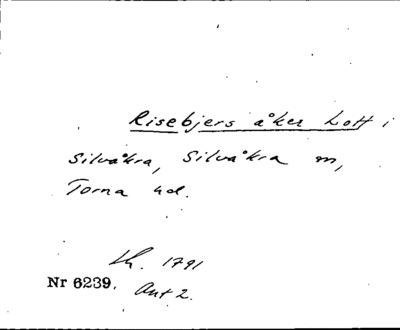 Risebjers åker Lott i
Silvåkra, Silvåkra m,
Torna hd.
Lh. 1791
Nr 6239. Akt 2.